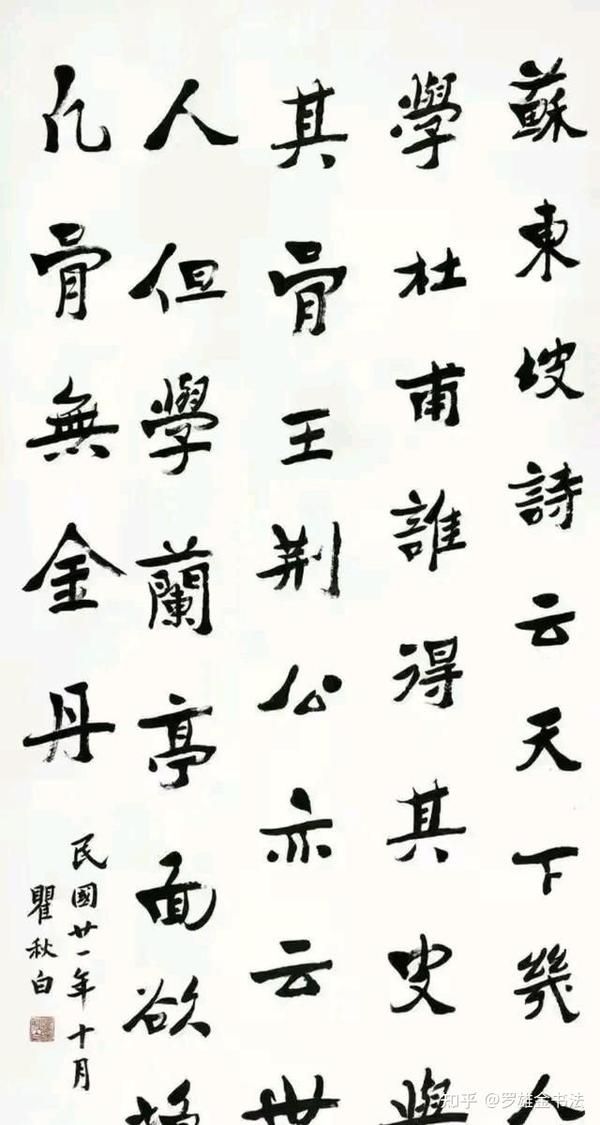 蘇東坡詩云天下幾人
學杜甫誰得其皮與
其骨王荆公亦云世
人但學蘭亭面欲換
凡骨無金丹
民國廿一年十月
瞿秋白
知乎 @罗雄金书法